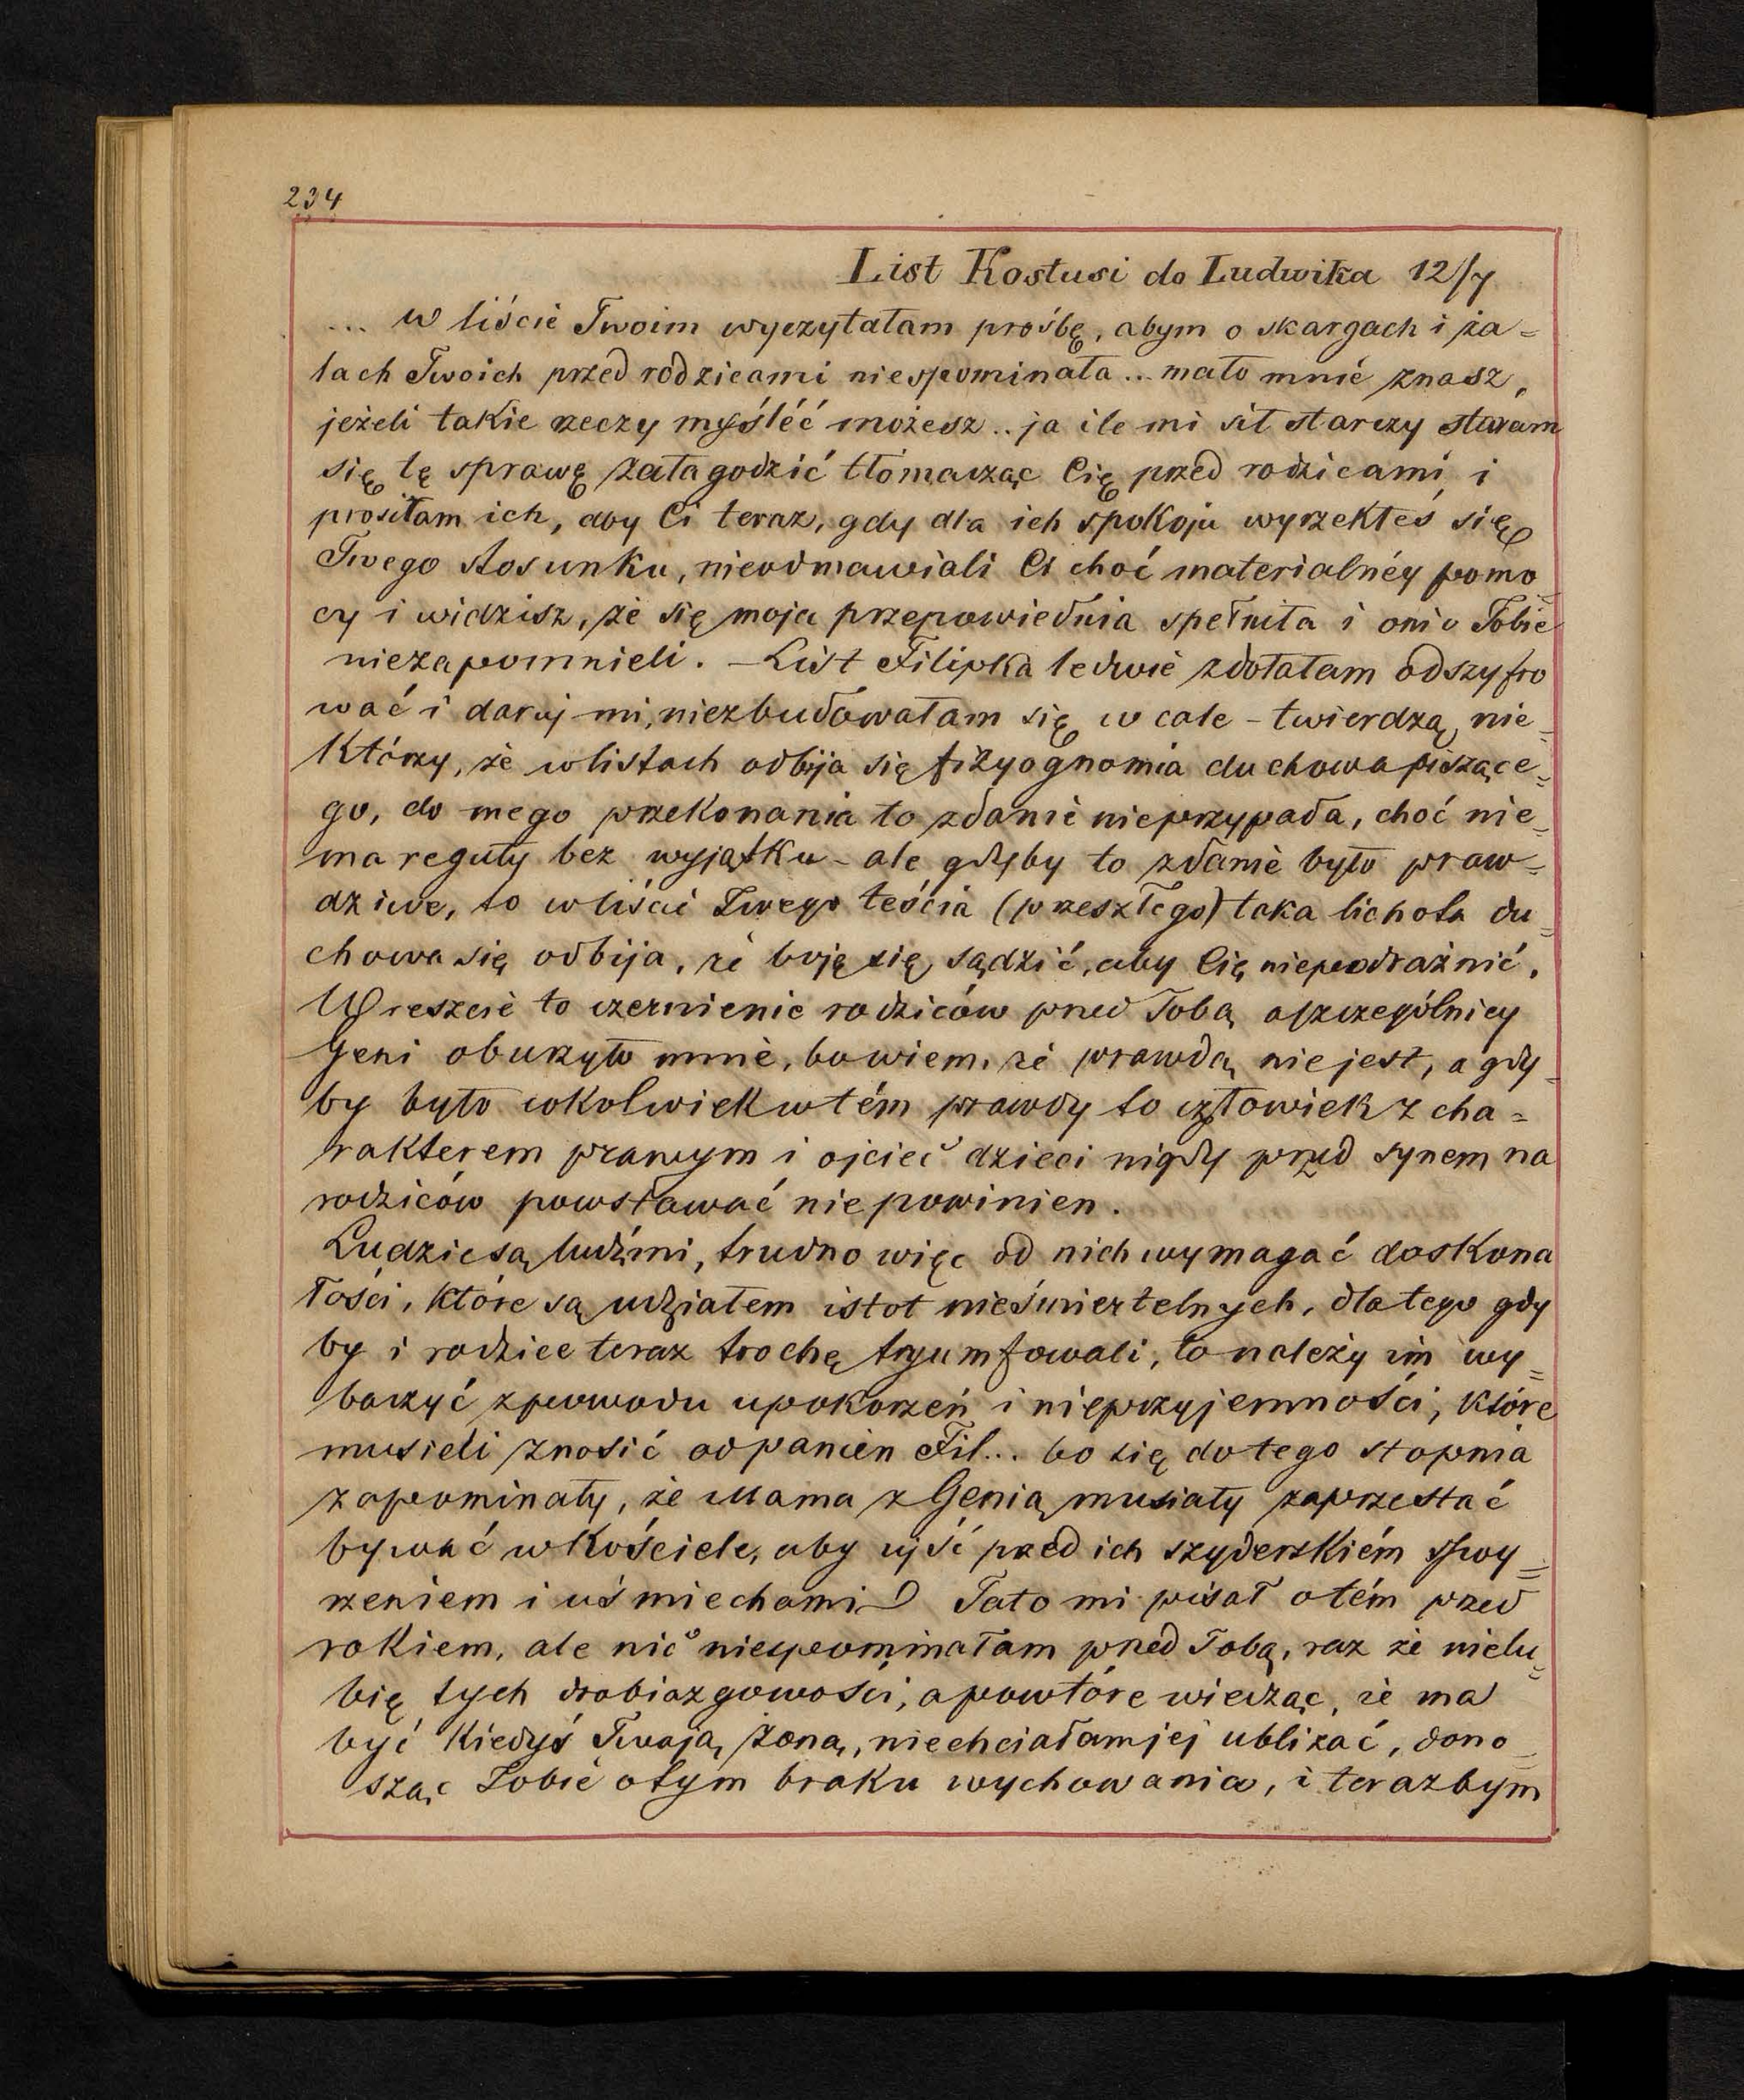 234
List Kostusi do Ludwika 12/7
... w liście Twoim wyczytałam prośbę, abym o skargach i ża=
lach Twoich przed rodzicami niespominała... mało mnie znasz,
jeżeli takie rzeczy myśléć możesz.. ja ile mi sił starczy staram
się tę sprawę załagodzić tłomacząc Cię przed rodzicami, i
prosiłam ich, aby Ci teraz, gdy dla ich spokoju wyrzekłeś się
Twego stosunku, nieodmawiali Ci choć materialnéy pomo=
cy i widzisz, że się moja przepowiednia spełniła i oni o Tobie
niezapomnieli. – List Filipka ledwie zdołałam odszyfro
wać i daruj mi, niezbudowałam się w cale – twierdzą nie=
którzy, że wlistach odbija się fizyognomia duchowa piszące=
go, do mego przekonania to zdanie nieprzypada, choć nie=
ma reguły bez wyjątku – ale gdyby to zdanie było praw=
dziwe, to wliście Twego teścia (przeszłego) taka lichota du=
chowa się odbija, że boję się sądzić, aby Cię niepodrażnić.
Wreszcie to czernienie rodziców przed Tobą aszczególniey
Geni oburzyło mnie, bowiem, że prawdą niejest, a gdy=
by było cokolwiek wtém prawdy to człowiek z cha=
rakterem prawym i ojciec dzieci nigdy przed synem na
rodziców powstawać niepowinien.
Ludzie są ludźmi, trudno więc od nich wymagać doskona
łości, które są udziałem istot nieśmiertelnych, dlatego gdy
by i rodzice teraz trochę tryumfowali, to należy im wy=
baczyć zpowodu upokorzeń i nieprzyjemności, które
musieli znosić odpanien Fil... bo się do tego stopnia
zapominały, że Mama z Genią musiały zaprzestać
bywać wKościele, aby ujść przed ich szyderskiém spoy=
rzeniem i uśmiechami Tato mi pisał otém przed
rokiem, ale nic niespominałam przed Tobą, raz że nielu=
bię tych drobiazgowości, apowtóre wiedząc, że ma
być kiedyś Twoją żoną, niechciałamjej ubliżać, dono=
sząc Tobie otym braku wychowania, i terazbym